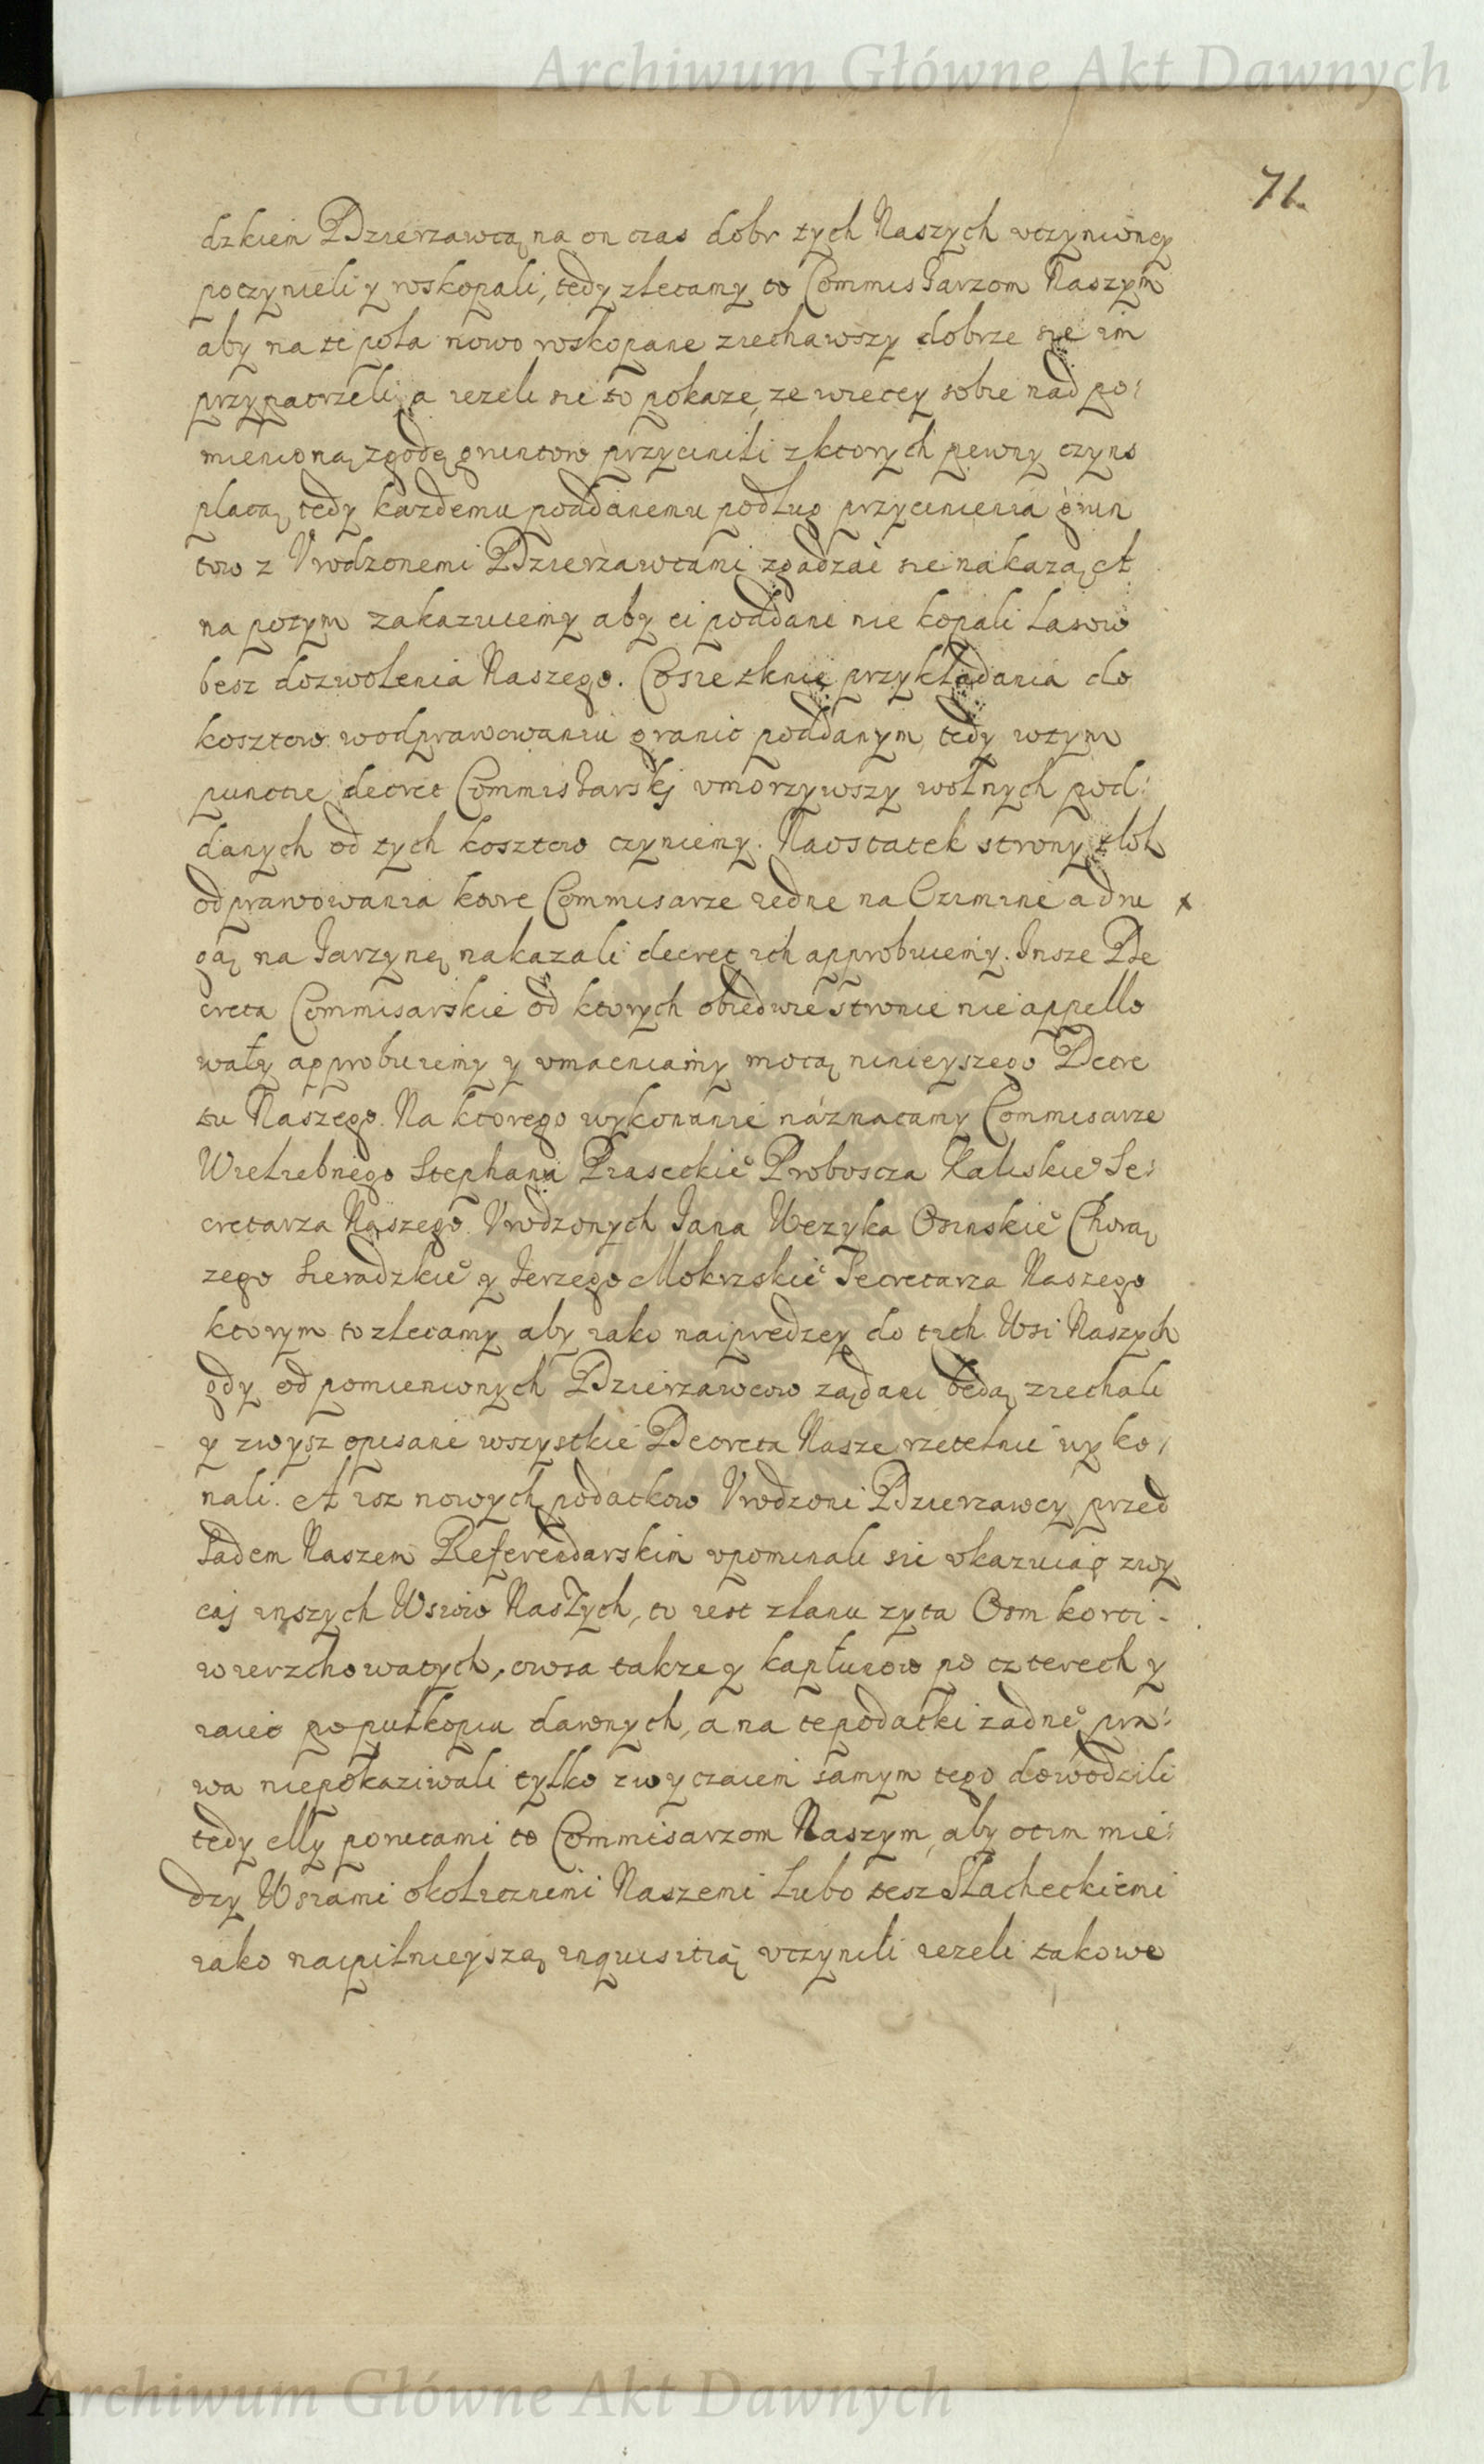 Archiwum Główne Akt Dawnych
71.
dzkiem Dzierzawcą na on czas dobr tych Naszych vczynioney
poczynieli y wskopali, tedy zlecamy to Commissarzom Naszym
aby na te pola nowo wskopane ziechawszy dobrze się im
przypatrzeli, a iezeli sie to pokaze, ze wiecey sobie nad po:
mienioną zgodę gruntow przyczinili z ktorych pewny czyns
płacą, tedy kazdemu poddanemu podług przyczinienia grun
tow z Vrodzonemi Dzierzawcami zgadzać sie nakazą, A
na potym zakazuiemy aby ci poddani nie kopali Lasow
besz dozwolenia Naszego. Co sie tknie przykładania do
kosztow w odprawowaniu granic poddanym, tedy w tym
punctie decret Commissarskj vmorzywszy wolnych pod:
danych od tych kosztow czyniemy. Naostatek strony
odprawowania ktore Commisarze iedne na Oziminę a dru
gą na Jarzynę nakazali decret ich approbuiemy. Insze De
creta Commisarskie od ktorych obiedwie stronie nie appello
wały approbuiemy y vmacniamy mocą ninieyszego Decre
tu Naszego. Na ktorego wykonanie náznacamy Commisarze
Wielebnego Stephana Piaseckie° Proboscza Kaliskie° Se:
cretarza Naszego. Vrodzonych Jana Wezyka Osinskie° Chorą
zego Sieradzkie° y Jerzego Mokrskie° Secretarza Naszego
ktorym to zlecamy aby iako naiprędzey do tich Wsi Naszych
gdy od pomienionych Dzierzawcow ządani będą ziechali
y zwysz opisane wszystkie Decreta Nasze rzetelnie wyko,
nali. A isz nowych podatkow Vrodzoni Dzierzawcy przed
Sądem Naszem Referendarskim vpominali sie vkazuiąc zwy
caj inszych Wsiow Naszych, to iest z łanu zyta Osm korci
wierzchowatych, owsa takze y kapłunow po czterech y
iaiec po pułkopiu dawnych, a na te podatki żadne° pra:
wa niepokaziwali tylko zwyczaiem samym tego dowodzili
tedy My porucami to Commisarzom Naszym, aby o tim mię:
dzy Wsiami okolicznemi Naszemi Lubo tesz Slacheckiemi
iako naipilnieyszą inquisitią vczynili iezeli takowe
Archiwum Główne Akt Dawnych